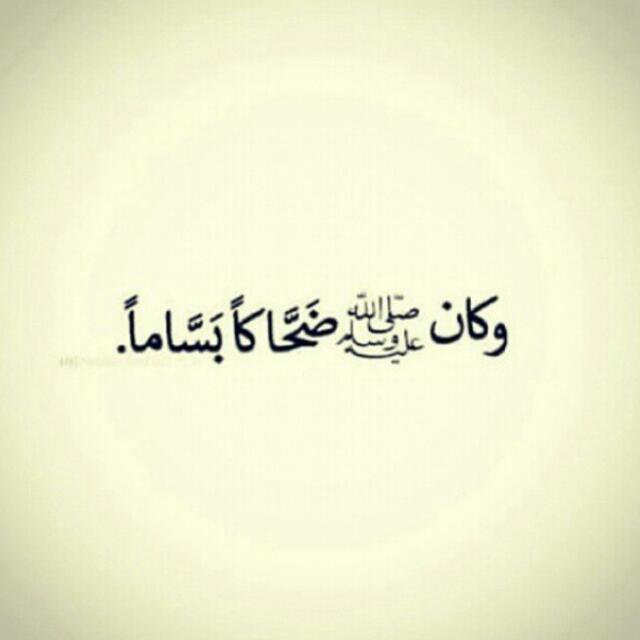 وكان ﷺ ضَحَّاكاً بَسَّاماً.